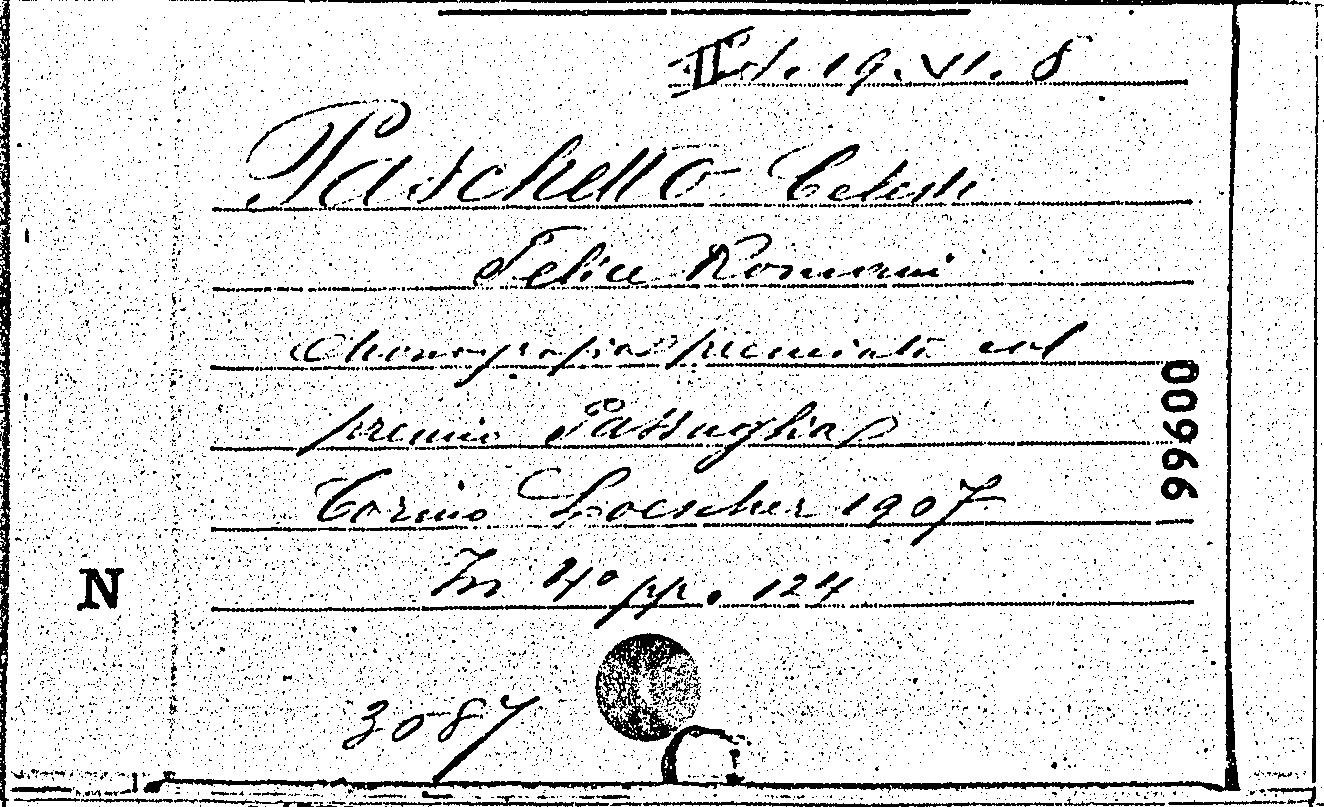 19. VI. 8
Paschetto Celeste
Felice Romani
Monografia premiata col
premio Passaglia
Torino Loescher 1907
In 4° pp. 124
3087
N
99600